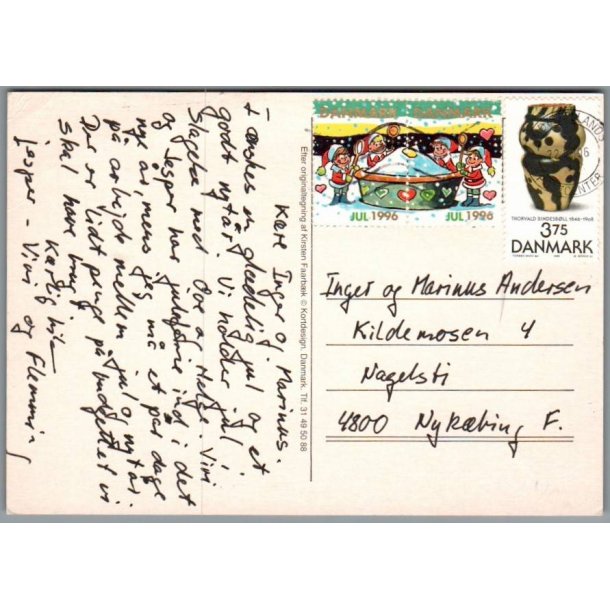 Kære Inger og Marinus.
I ønskes en glædelig jul og et
godt nytår. Vi holder jul i
Slagelse med Eva og Helge. Vivi
og Jesper har juleferie ind i det
nye år, mens jeg må et par dage
på arbejde mellem jul og nytår.
Der er lidt penge på budgettet vi
skal have brugt.
Kærlig hilsen
Jesper Vivi og Flemming
Efter originaltegning af Kirsten Faarbæk © Kortdesign, Danmark. Tlf. 31 49 50 88
DANMARK DANMARK
JUL 1996 JUL 1996
THORVALD BINDESBØLL 1846-1908
3.75
DANMARK
Inger og Marinus Andersen
Kildemosen 4
Nagelsti
4800 Nykøbing F.